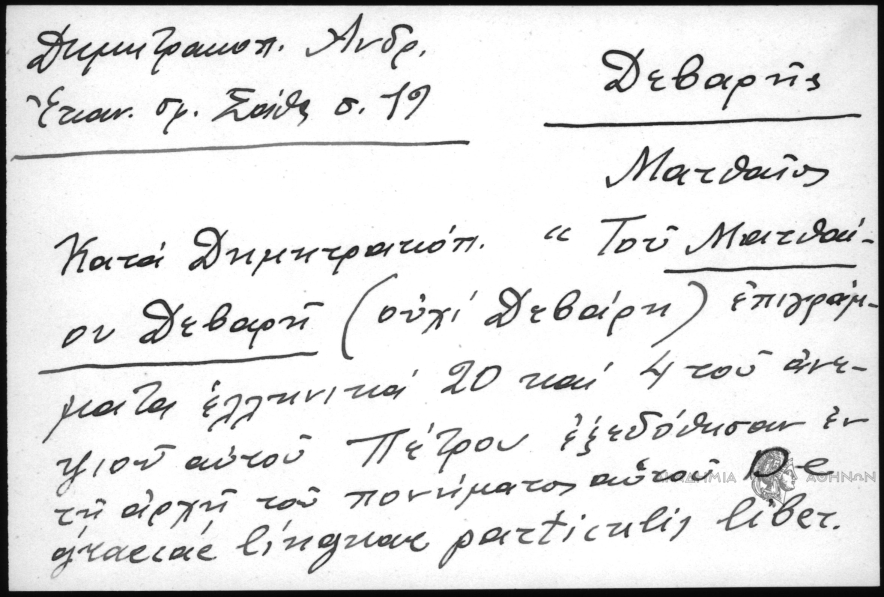 Δημητρακοπ. Ἀνδρ.
Ἐπαν. σφ. Σάθα σ. 19
Δεβαρῆς
Ματθαῖος
Κατά Δημητρακόπ. “Τοῦ Ματθαί-
ου Δεβαρῆ (οὐχί Δεβάρη) ἐπιγράμ-
ματα ἑλληνικά 20 καί 4 τοῦ ἀνε-
ψιοῦ αὐτοῦ Πέτρου ἐξεδόθησαν ἐν
τῇ ἀρχῇ τοῦ πονήματος αὐτοῦ De
graecae linguae particulis liber.
ΑΚΑΔΗΜΙΑ ΑΘΗΝΩΝ